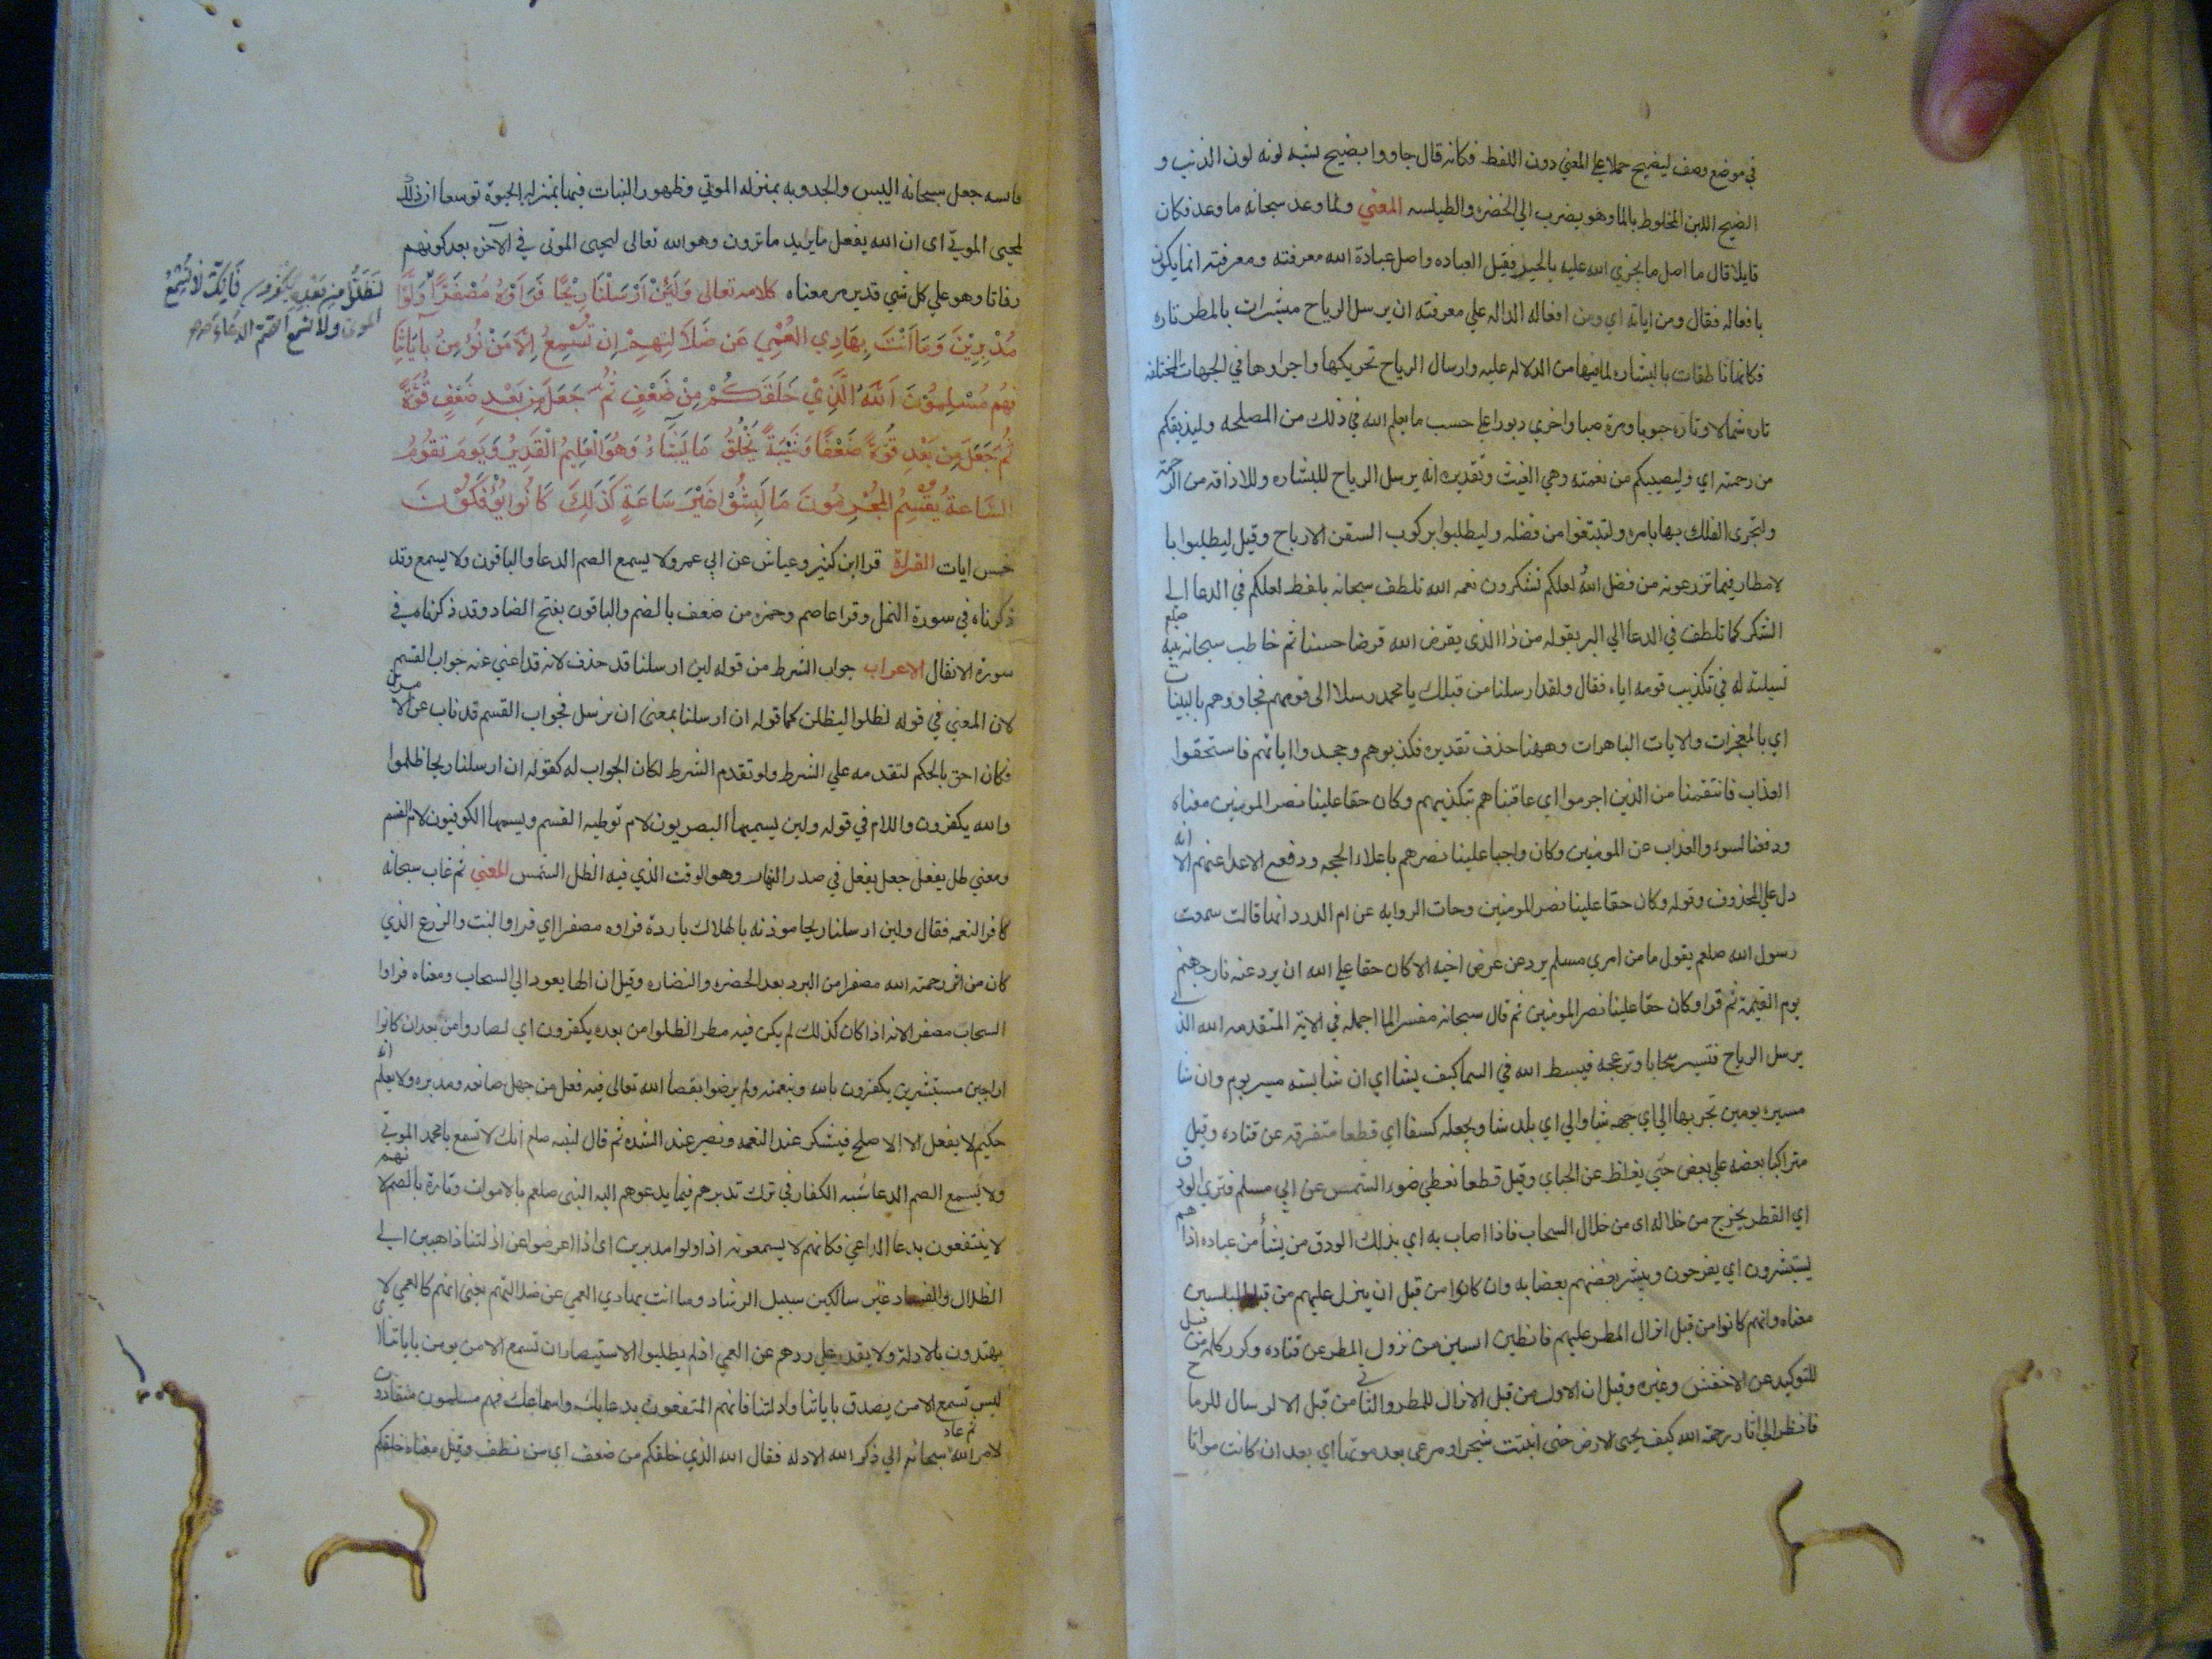 في موضع وصف ليضيح حملا علي المعني دون اللفظ فكانه قال جاووا بضيح يشبه لونه لون الذئب و
الضيح اللبن المخلوط بالما وهو يضرب الي الخضره والطيلسه المعني ولما وعد سبحانه ما وعد فكان
قايلا قال ما اصل ما يجزي الله عليه بالخير فقيل العباده واصل عبادة الله معرفته ومعرفته انما يكون
بافعاله فقال ومن اياته اي ومن افعاله الداله علي معرفته ان يرسل الرياح مبشرات بالمطر تاره
فكانها ناطقات بالبشاره لما فيها من الدلاله عليه وارسال الرياح تحريكها واجراوها في الجهات المختلفه
تاره شمالا وتاره جنوبا ومرة صبا واخري دبورا علي حسب ما يعلم الله في ذلك من المصلحه وليذيقكم
من رحمته اي وليصيبكم من نعمته وهي الغيث وتقديره انه يرسل الرياح للبشاره وللاذاقه من الرحمة
ولتجري الفلك بها بامره ولتبتغوا من فضله وليطلبوا بركوب السفن الارباح وقيل ليطلبوا با
لامطار فيما تزرعونه من فضل الله لعلكم تشكرون نعمه الله تلطف سبحانه بلفظ لعلكم في الدعا الي
الشكر كما تلطف في الدعا الي البر بقوله من ذا الذي يقرض الله قرضا حسنا ثم خاطب سبحانه نبيه صلعم
تسلية له في تكذيب قومه اياه فقال ولقد ارسلنا من قبلك يا محمد رسلا الي قومهم فجاووهم بالبينات
اي بالمعجزات والايات الباهرات وههنا حذف تقديره فكذبوهم وجحدوا اياتهم فاستحقوا
العذاب فانتقمنا من الذين اجرموا اي عاقبناهم بتكذيبهم وكان حقا علينا نصر المومنين معناه
ودفعنا السوء والعذاب عن المومنين وكان واجبا علينا نصرهم باعلاء الحجه ودفع الاعدا عنهم الا انه
دل علي المحذوف وقوله وكان حقا علينا نصر المومنين وجات الروايه عن ام الدردا انها قالت سمعت
رسول الله صلعم يقول ما من امري مسلم يرد عن عرض اخيه الا كان حقا علي الله ان يرد عنه نار جهنم
يوم القيمة ثم قرا وكان حقا علينا نصر المومنين ثم قال سبحانه مفسرا لما اجمله في الاية المتقدمه الله الذي
يرسل الرياح فتثير سحابا وتزعجه فيبسط الله في السما كيف يشا اي ان شا بسته مسير يوم وان شا
مسيره يومين تجر بها الي اي جهه شا والي اي بلد شا ويجعله كسفا اي قطعا متفرقه عن قتاده وقيل
متراكبا بعضه علي بعض حتي يغلظ عن الجباي وقيل قطعا تغطي ضوء الشمس عن ابي مسلم فتري الودق
اي القطر يخرج من خلاله اي من خلال السحاب فاذا اصاب به اي بذلك الودق من يشأ من عباده اذا هم
يستبشرون اي يفرحون ويبشر بعضهم بعضا به وان كانوا من قبل ان ينزل عليهم من قبله لمبلسين
معناه وانهم كانوا من قبل انزال المطر عليهم قانطين ايسين من نزول المطر عن قتاده وكرر كلمه من قبل
للتوكيد عن الاخفش وغيره وقيل ان الاول من قبل الانزال للمطر والثاني من قبل الارسال للرياح
فانظر الي اثار رحمة الله كيف يحيي الارض حتي انبتت شجرا ومرعي بعد موتها اي بعد ان كانت مواتا
يابسه جعل سبحانه اليبس والجدوبه بمنزله الموتي وظهور النبات فيها بمنزله الحيوة توسعا ان ذلك
لمحيي الموتي اي ان الله يفعل ما يريد ما ترون وهو الله تعالي ليحيي الموتي في الآخره بعد كونهم
رفاتا وهو علي كل شي قدير مر معناه كلامه تعالي وَلَئِنْ اَرْسَلْنَا رِيْحًا فَرَاَوْهُ مُصْفَرًّا وَلَّوْا
مُدْبِرِيْنَ وَمَا اَنْتَ بِهَادِي العُمْيِ عَن ضَلَالَتِهِمْ اِن تُسْمِعُ اِلَّا مَنْ يُؤْمِنُ بآيَاتِنَا
فَهُم مُسْلِمُوْنَ اَللَّهُ الَّذِيْ خَلَقَكُمْ مِنْ ضَعْفٍ ثُمَّ جَعَلَ مِن بَعْدِ ضَعْفٍ قُوَّةً
ثُمَّ جَعَلَ مِن بَعْدِ قُوَّةٍ ضَعْفًا وَشَيْبَةً يَخْلُقُ مَا يَشَآءُ وَهُوَ الْعَلِيمُ الْقَدِيْرُ وَيَومَ تَقُوْمُ
السَّاعَةُ يُقْسِمُ المُجْرِمُونَ مَا لَبِثُوْا غَيْرَ سَاعَةٍ كَذَلِكَ كَانُوا يُؤْفَكُوْنَ
خمس ايات القراءة قرا ابن كثير وعباس عن ابي عمرو لا يسمع الصم الدعا والباقون ولا يسمع وقد
ذكرناه في سورة النمل وقرا عاصم وحمزه من ضعف بالضم والباقون بفتح الضاد وقد ذكرناه في
سورة الانفال الاعراب جواب الشرط من قوله لين ارسلنا قد حذف لانه قد اغني عنه جواب القسم
لان المعني في قوله لظلوا ليظلن كما قوله ان ارسلنا بمعنى ان نرسل فجواب القسم قد ناب عن الامرين
فكان احق بالحكم لتقدمه علي الشرط ولو تقدم الشرط لكان الجواب له كقوله ان ارسلنا ريحا ظلموا
والله يكفرون واللام في قوله ولين يسميها البصريون لام توطيه القسم ويسمها الكوفيون لام القسم
ومعني ظل يفعل جعل يفعل في صدر النهار وهو الوقت الذي فيه الظل الشمس المعني ثم عاب سبحانه
كافر النعمه فقال ولين ارسلنا ريحا موذنه بالهلاك باردة فراوه مصفرا اي فراوا النبت والزرع الذي
كان من اثر رحمة الله مصفرا من البرد بعد الخضره والنضاره وقيل ان الها يعود الي السحاب ومعناه فراوا
السحاب مصفرا لانه اذا كان كذلك لم يكن فيه مطر لظلوا من بعده يكفرون اي لصاروا من بعد ان كانوا
راجين مستبشرين يكفرون بالله وبنعمته ولم يرضوا بقضا الله تعالي فيه فعل من جهل صانعه ومدبره ولا يعلم انه
حكيم لا يفعل الا الاصلح فيشكر عند النعمه ويصبر عند الشده ثم قال لنبيه صلعم انك لا تسمع يا محمد الموتي
ولا يسمع الصم الدعا شبه الكفار في ترك تدبرهم فيما يدعوهم اليه النبي صلعم بالاموات وتارة بالصم لانهم
لا ينتفعون بدعا الداعي فكانهم لا يسمعونه اذا ولوا مدبرين اي اذا اعرضوا عن ادلتنا ذاهبين الي
الظلال والفساد غير سالكين سبيل الرشاد وما انت بهادي العمي عن ضلالتهم يعني انهم كالعمي لا
يهتدون بالادلة ولا يقدر علي ردهم عن العمي اذ لم يطلبوا الاستبصار ان تسمع الا من يومن باياتنا اي
ليس تسمع الا من يصدق باياتنا وادلتنا فانهم المنتفعون بدعايك واسماعك فهم مسلمون منقادون
لامر الله ثم عاد سبحانه الي ذكر الله الادله فقال الله الذي خلقكم من ضعف اي من نطف وقيل معناه خلقكم
لَظَلُّوا مِنْ بَعْدِهِ يَكْفُرُونَ فَاِنَّكَ لَا تُسْمِعُ
الموتى ولا تسمع الصم الدعاء